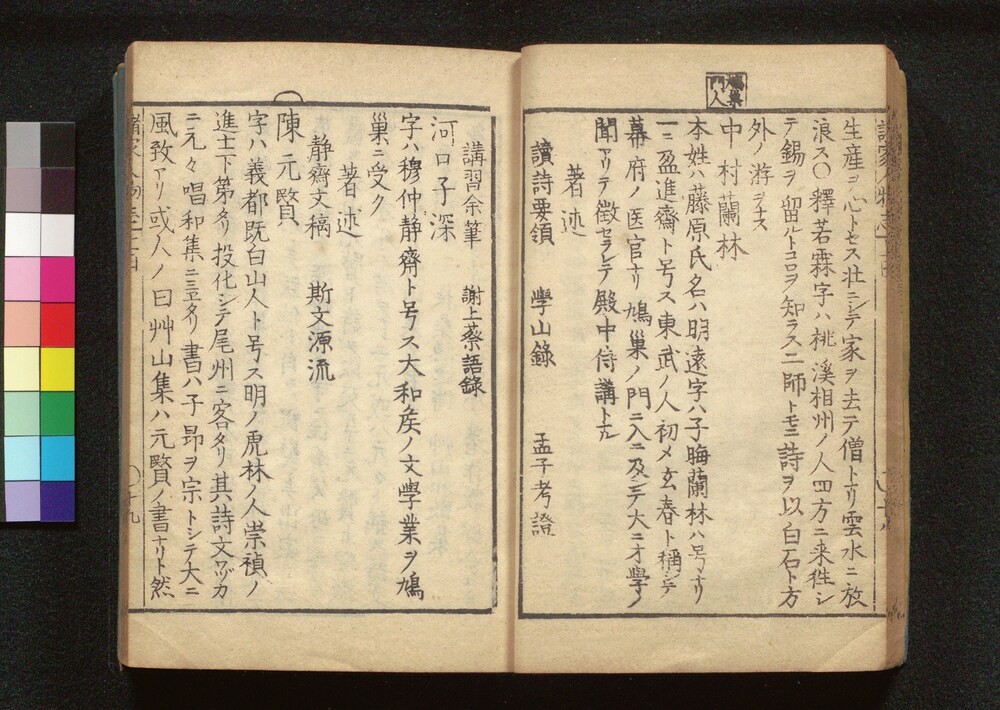 生産ヲ心トセス壮ニシテ家ヲ去テ僧トナリ雲水ニ放
浪ス〇釋若霖字ハ桃溪相州ノ人四方ニ来徃シ
テ錫ヲ留ルトコロヲ知ラス二師トモニ詩ヲ以白石ト方
外ノ游ヲナス
鳩巣門人
中村蘭林
本姓ハ藤原氏名ハ明遠字ハ子晦蘭林ハ号ナリ
一ニ盈進齋ト号ス東武ノ人初メ玄春ト稱シテ
幕府ノ医官ナリ鳩巣ノ門ニ入ニ及ンテ大ニ才學ノ
聞アリテ徴セラレテ殿中侍講トナル
著述
讀詩要領 學山錄 孟子考證
講習余筆 謝上蔡語錄
河口子深
字ハ穆仲静齋ト号ス大和矦ノ文學業ヲ鳩
巣ニ受ク
著述
静齋文稿 斯文源流
陳元贇
字ハ義都既白山人ト号ス明ノ虎林ノ人崇禎ノ
進士下第タリ投化シテ尾州ニ客タリ其詩文ワツカ
ニ元々唱和集ニ見タリ書ハ子昻ヲ宗トシテ大ニ
風致アリ或人ノ曰艸山集ハ元贇ノ書ナリト然